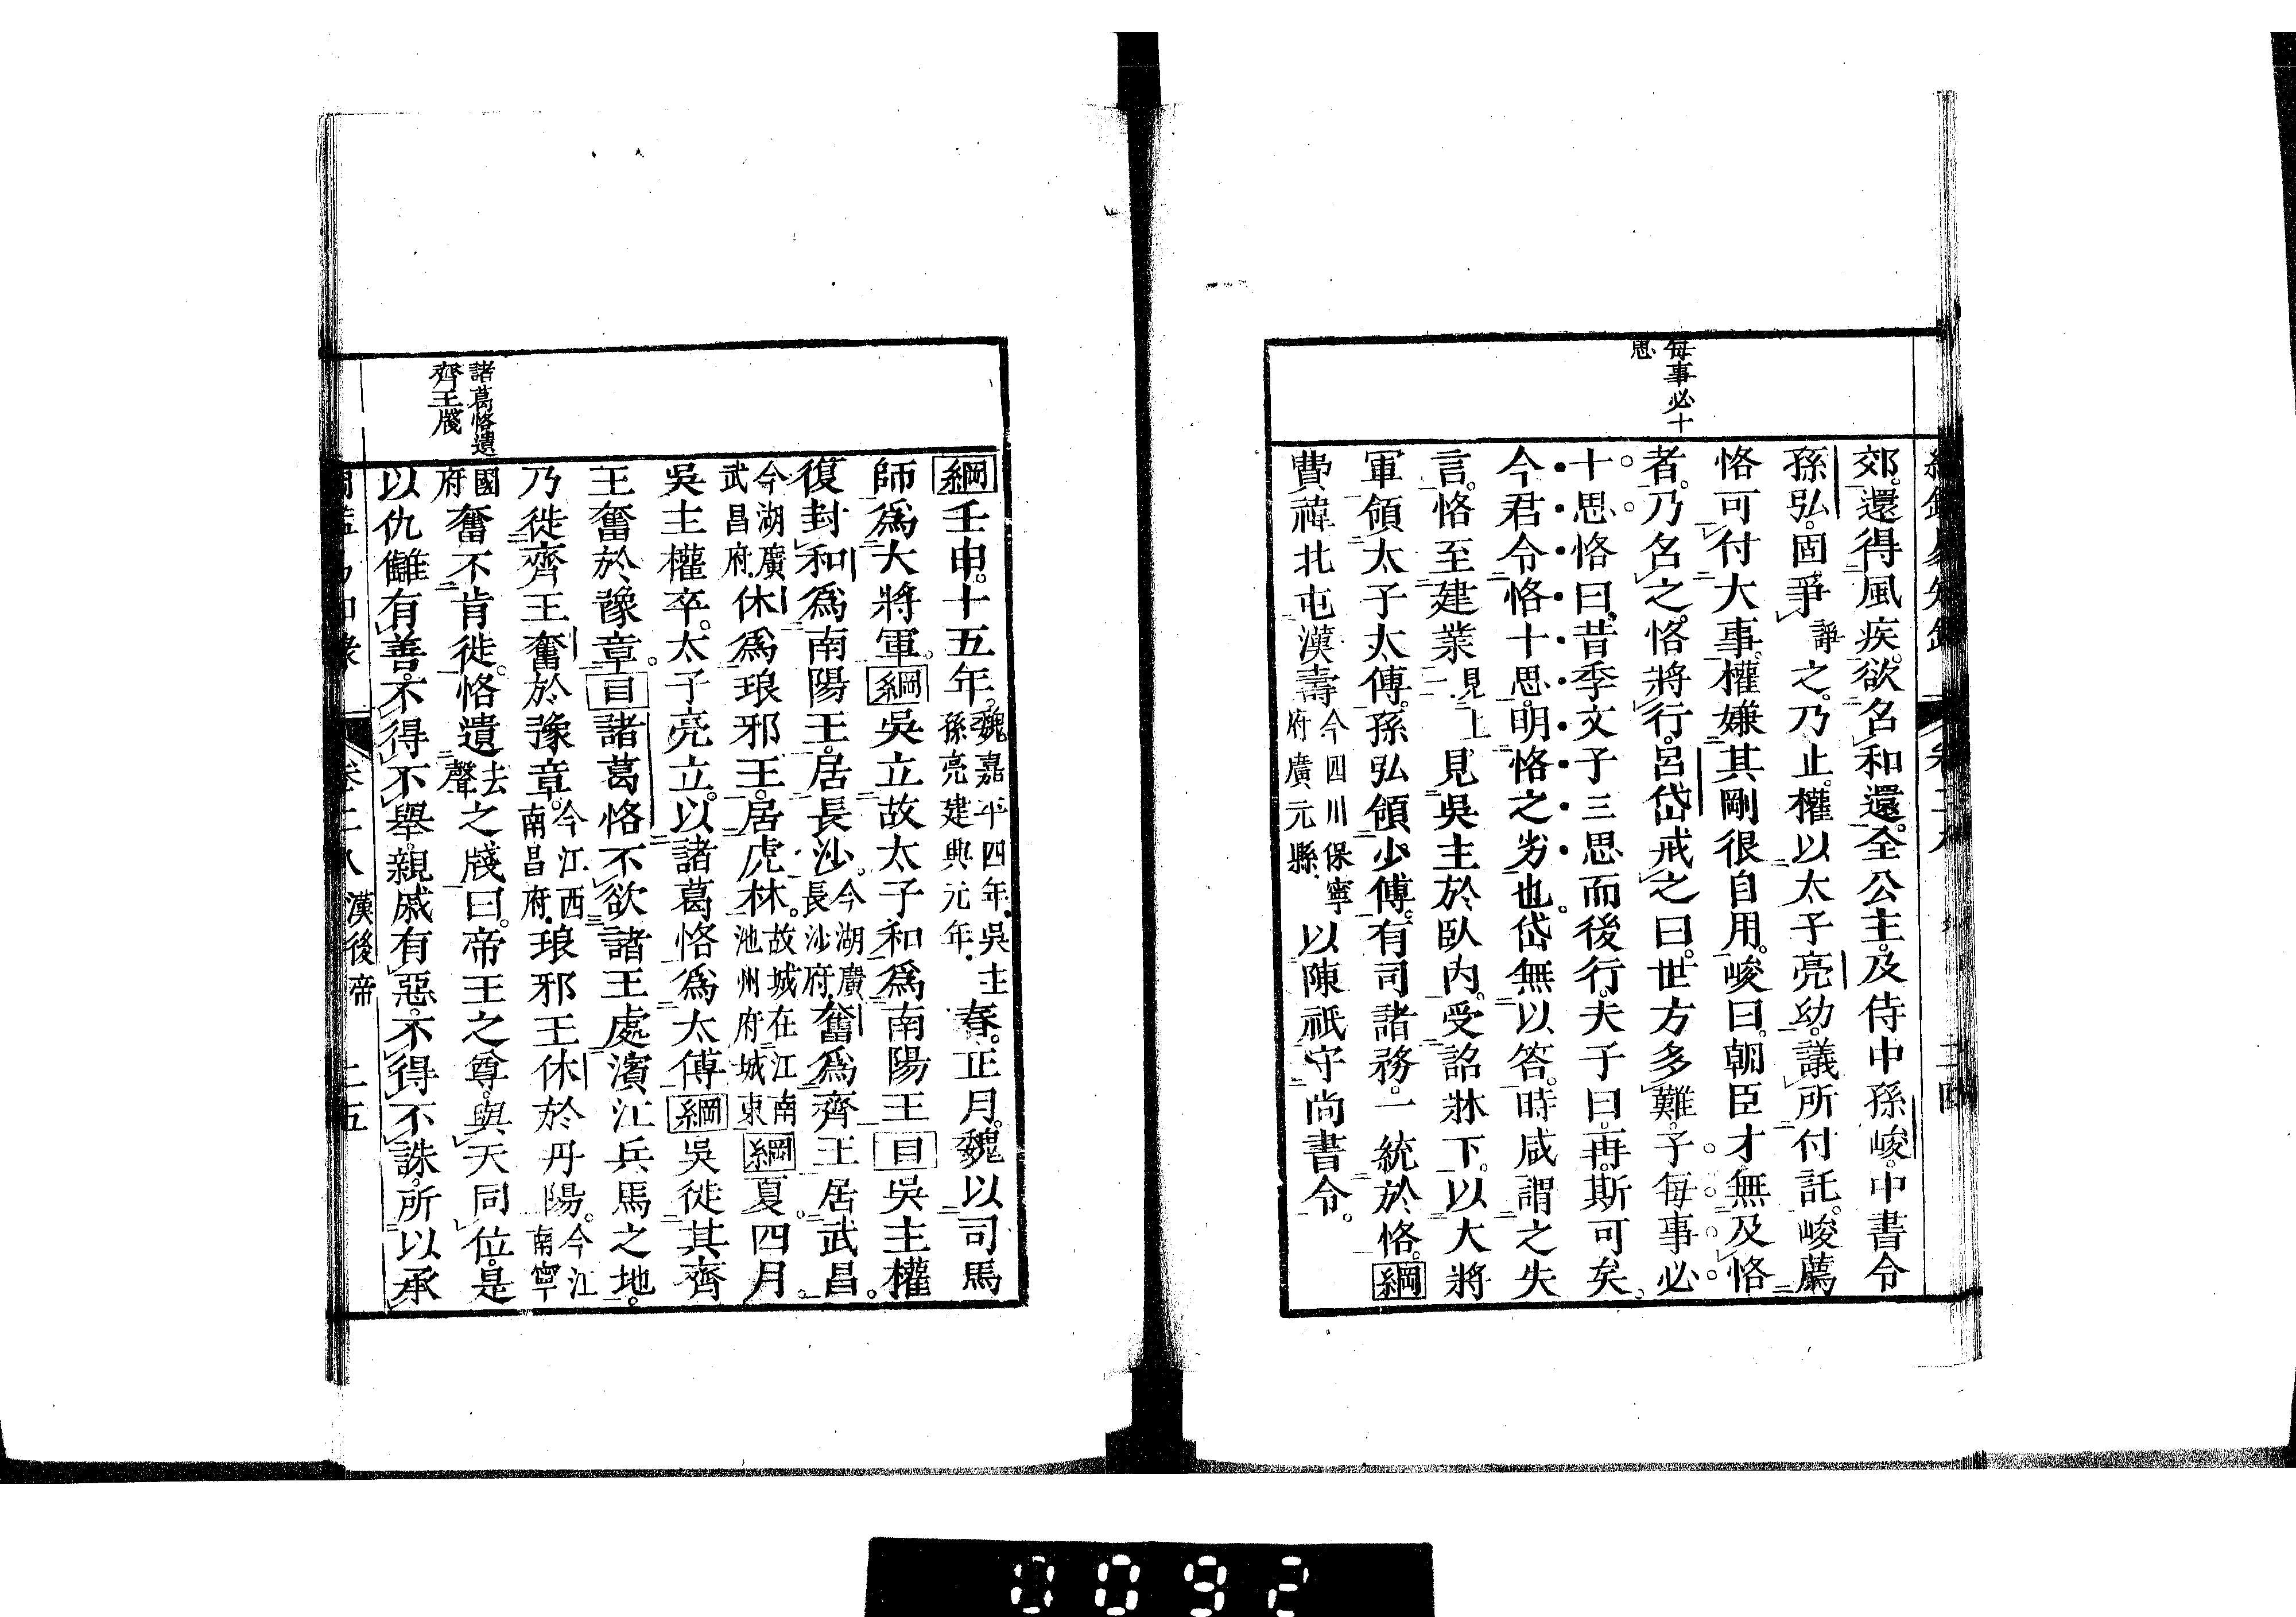 每事必十
思
郊。還得風疾。欲名和還。全公主。及侍中孫峻。中書令
孫弘。固爭諍之。乃止。權以太子亮幼。議所付託。峻薦
恪可付大事。權嫌其剛很自用。峻曰。朝臣才無及恪
者。乃名之。恪將行。呂岱戒之曰。世方多難。子每事必
十思。恪曰。昔季文子三思而後行。夫子曰。再斯可矣。
今君令恪十思。明恪之劣也。岱無以答。時咸謂之失
言。恪至建業見上。見吳主於臥內。受詔牀下。以大將
軍領太子太傅。孫弘領少傅。有司諸務。一統於恪。綱
費禕北屯漢壽今四川保寧府廣元縣。以陳祇守尚書令。
綱壬申。十五年。魏嘉平四年。吳主孫亮建興元年。春。正月。魏以司馬
師爲大將軍。綱吳立故太子和爲南陽王目吳主權
復封和爲南陽王。居長沙。今湖廣長沙府。奮爲齊王居武昌。
今湖廣武昌府。休爲琅邪王。居虎林。故城在江南池州府城東綱夏。四月。
吳主權卒。太子亮立。以諸葛恪爲太傅綱吳徙其齊
王奮於豫章。目諸葛恪不欲諸王處濱江兵馬之地。
乃徙齊王奮於豫章。今江西南昌府。琅邪王休於丹陽。今江南寧
國府奮不肯徙。恪遺去聲之牋曰。帝王之尊。與天同位。是
以仇讎有善。不得不舉。親戚有惡。不得不誅。所以承
諸葛恪遺
齊王牋
卷二八 漢後帝 二五